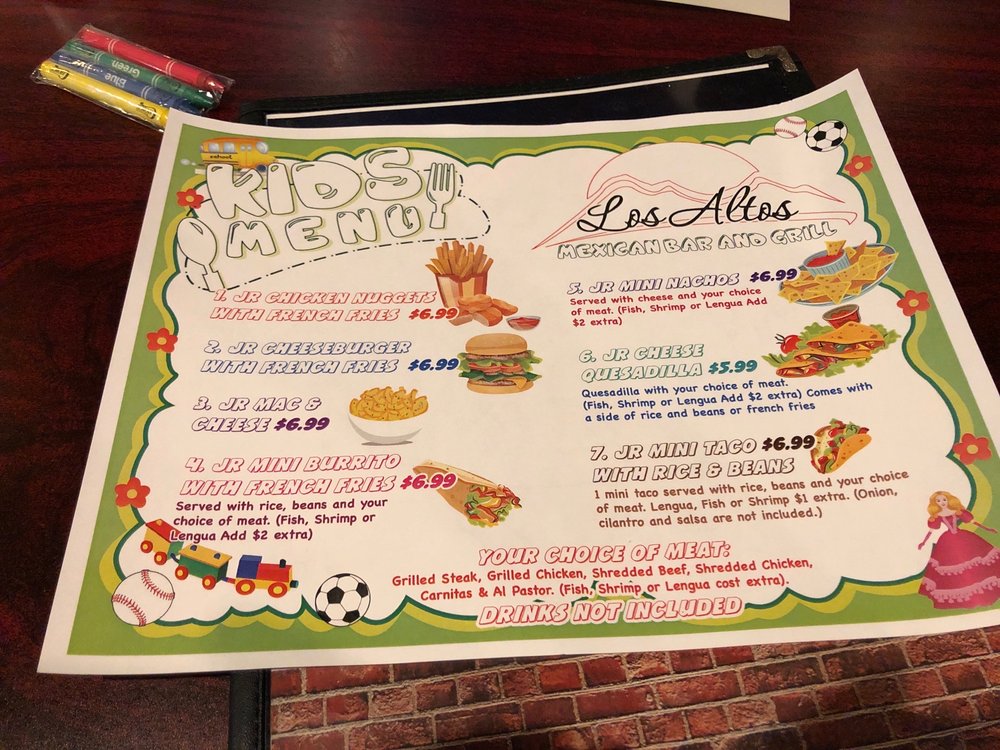 Green
Blue
school
KIDS
MENU
1. JR CHICKEN NUGGETS
WITH FRENCH FRIES $6.99
2. JR CHEESEBURGER
WITH FRENCH FRIES $6.99
3. JR MAC &
CHEESE $6.99
4. JR MINI BURRITO
WITH FRENCH FRIES $6.99
Served with rice, beans and your
choice of meat. (Fish, Shrimp or
Lengua Add $2 extra)
Los Altos
MEXICAN BAR AND GRILL
5. JR MINI NACHOS $6.99
Served with cheese and your choice
of meat. (Fish, Shrimp or Lengua Add
$2 extra)
6. JR CHEESE
QUESADILLA $5.99
Quesadilla with your choice of meat.
(Fish, Shrimp or Lengua Add $2 extra) Comes with
a side of rice and beans or french fries
7. JR MINI TACO $6.99
WITH RICE & BEANS
1 mini taco served with rice, beans and your choice
of meat. Lengua, Fish or Shrimp $1 extra. (Onion,
cilantro and salsa are not included.)
YOUR CHOICE OF MEAT:
Grilled Steak, Grilled Chicken, Shredded Beef, Shredded Chicken,
Carnitas & Al Pastor. (Fish, Shrimp or Lengua cost extra).
DRINKS NOT INCLUDED